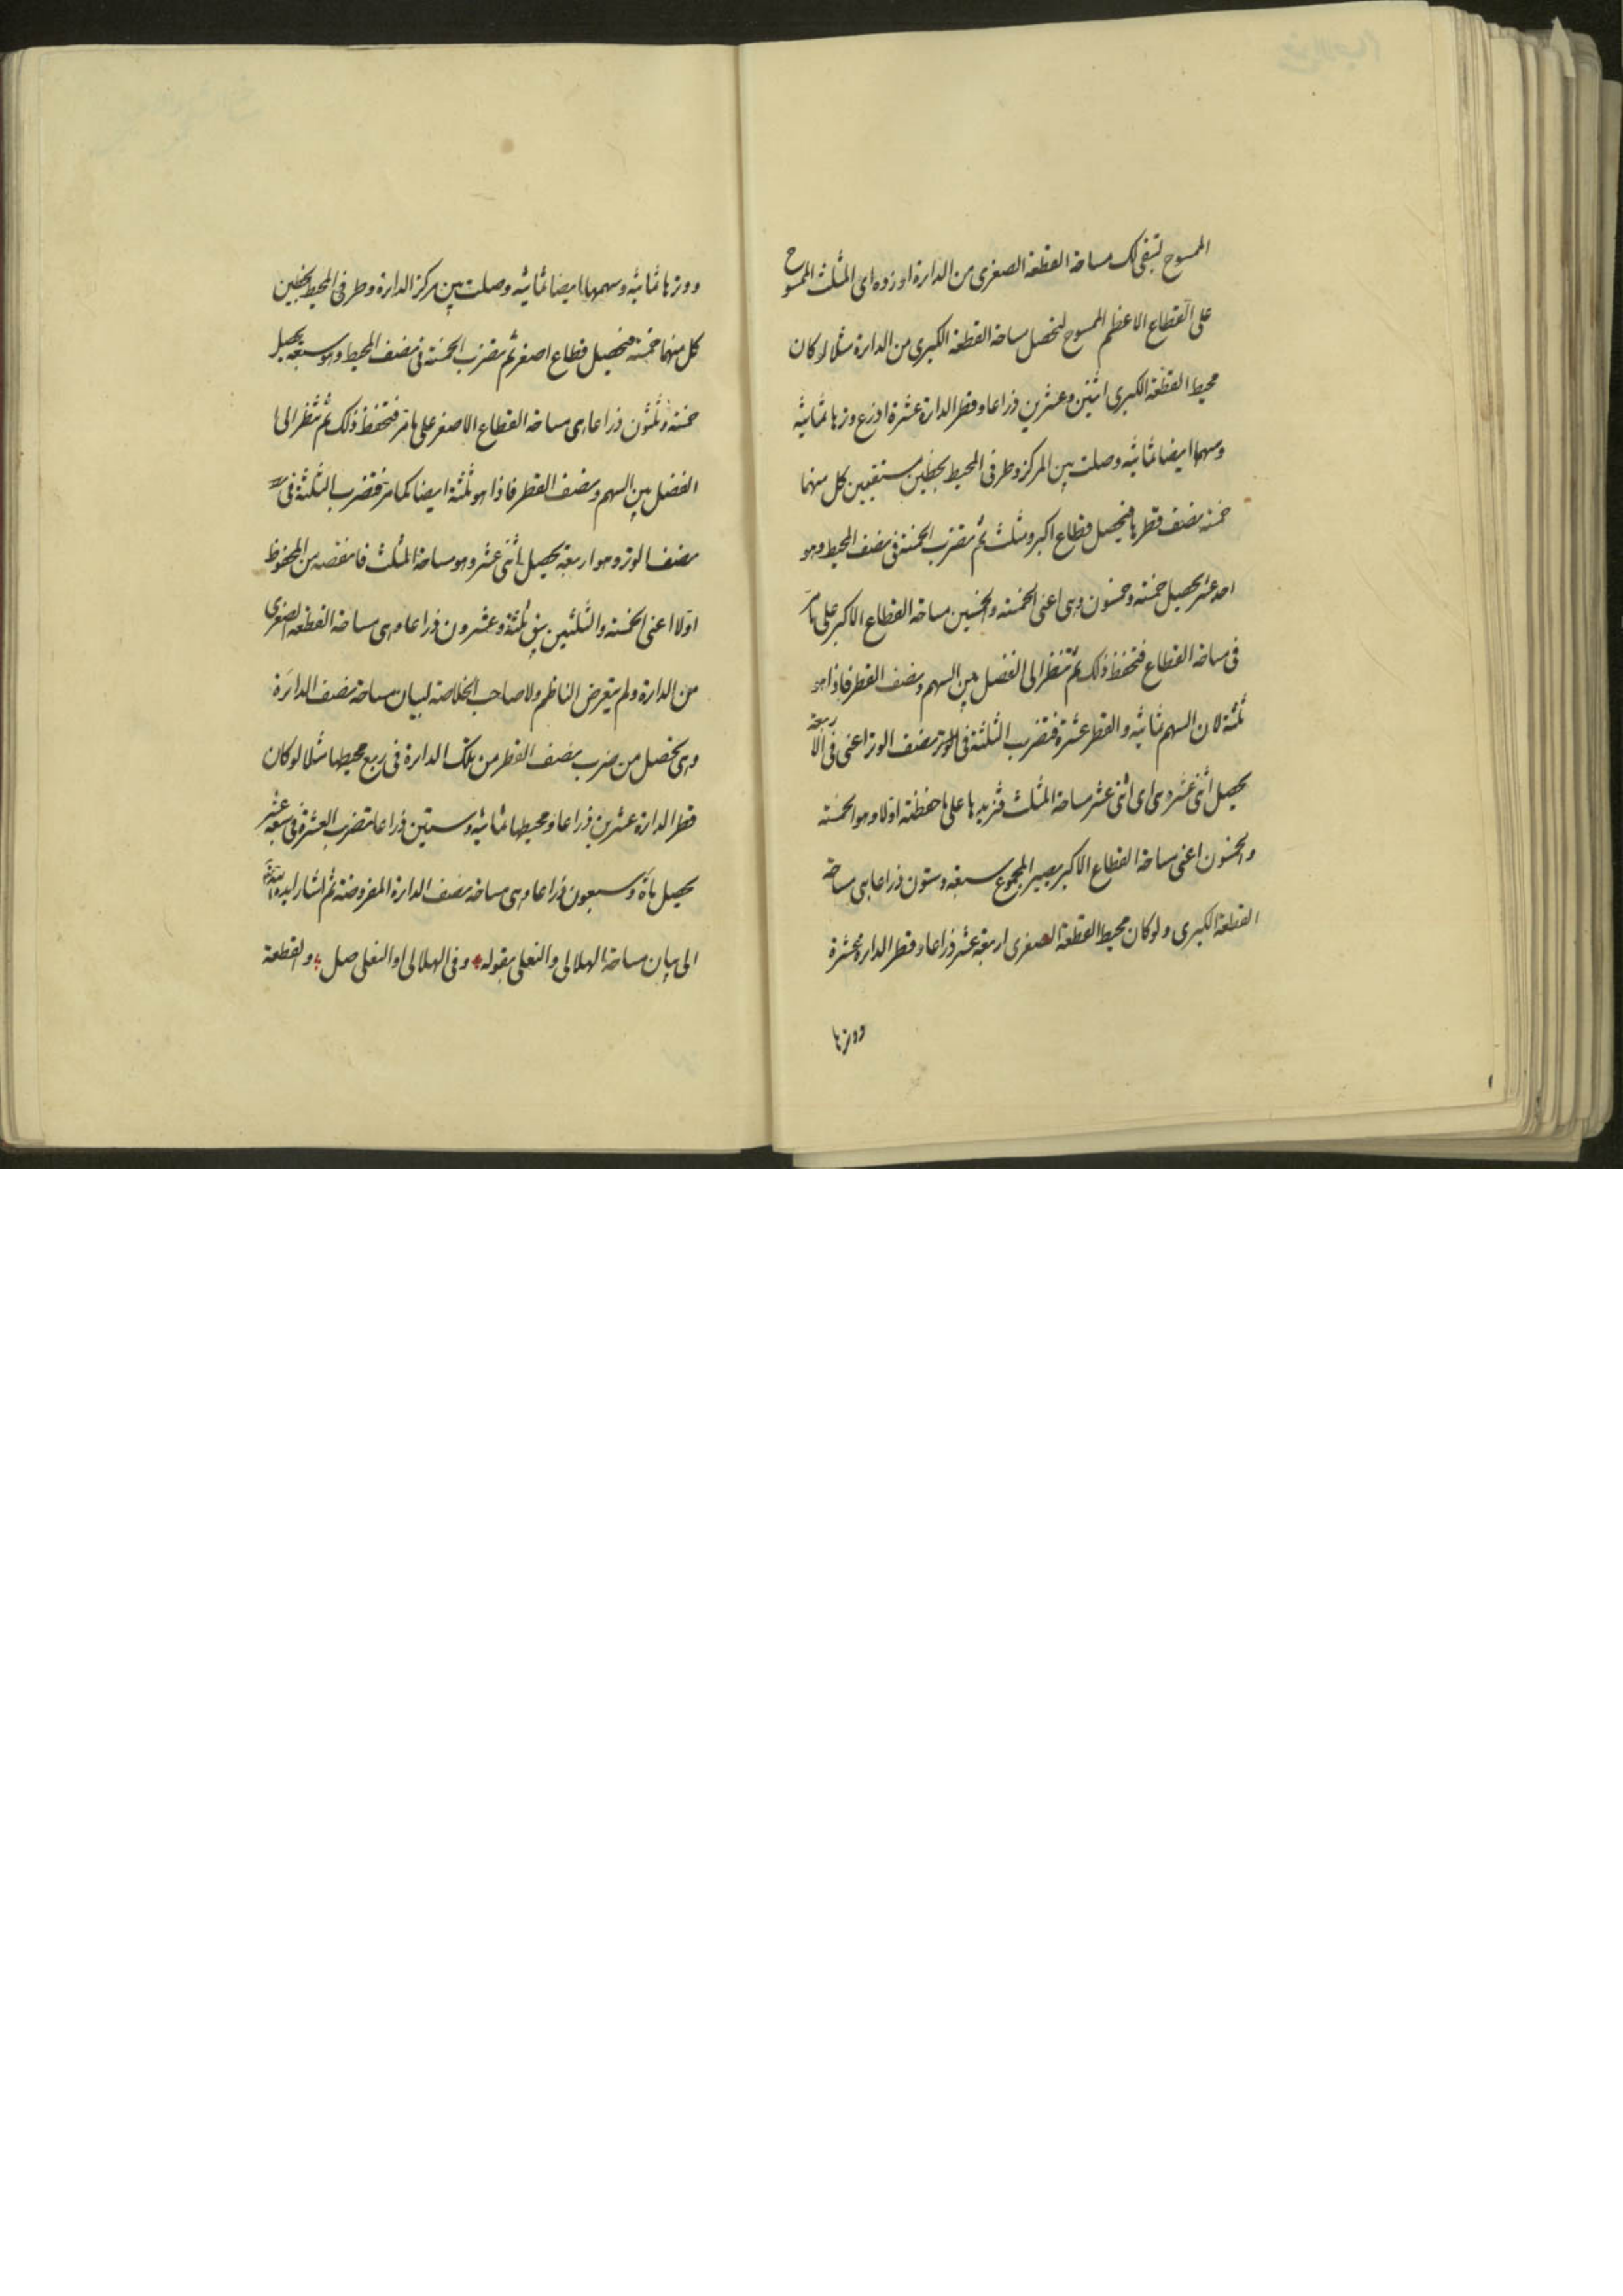 الممسوح لتبقى لك مساحة القطعة الصغرى من الدائرة او زده اى المثلث الممسوح
على القطاع الاعظم الممسوح لتحصل مساحة القطعة الكبرى من الدائرة مثلا لو كان
محيط القطعة الكبرى اثنين وعشرين ذراعا وقطر الدائرة عشرة اذرع ووترها ثمانية
وسهمها ايضا ثمانية وصلت بين المركز وطرفى المحيط بخطين مستقيمين كل منهما
خمسة نصف قطرها فيحصل قطاع اكبر ومثلث ثم تضرب الخمسة فى نصف المحيط وهو
احد عشر يحصل خمسة وخمسون وهى اعنى الخمسة والخمسين مساحة القطاع الاكبر على ما مر
فى مساحة القطاع فتحفظ ذلك ثم تنظر الى الفضل بين السهم ونصف القطر فاذا هو
ثلثة لان السهم ثمانية والقطر عشرة فتضرب الثلثة فى نصف الوتر اعنى فى الاربعة
يحصل اثنى عشر وهى اى اثنى عشر مساحة المثلث فتزيدها على ما حفظته اولا وهو الخمسة
والخمسون اعنى مساحة القطاع الاكبر يصير المجموع سبعة وستون ذراعا هى مساحة
القطعة الكبرى ولو كان محيط القطعة الصغرى اربعة عشر ذراعا وقطر الدائرة عشرة
ووترها
ووترها ثمانية وسهمها ايضا ثمانية وصلت بين مركز الدائرة وطرفى المحيط بخطين
كل منهما خمسة فيحصل قطاع اصغر ثم تضرب الخمسة فى نصف المحيط وهو سبعة يحصل
خمسة وثلثون ذراعا هى مساحة القطاع الاصغر على ما مر فتحفظ ذلك ثم تنظر الى ما
الفضل بين السهم ونصف القطر فاذا هو ثلثة ايضا كما مر فتضرب الثلثة فى
نصف الوتر وهو اربعة يحصل اثنى عشر وهو مساحة المثلث فانقصه من المحفوظ
اولا اعنى الخمسة والثلثين يبق ثلثة وعشرون ذراعا وهى مساحة القطعة الصغرى
من الدائرة ولم يتعرض الناظم ولا صاحب الخلاصة لبيان مساحة نصف الدائرة
وهى تحصل من ضرب نصف القطر من تلك الدائرة فى ربع محيطها مثلا لو كان
قطر الدائرة عشرين ذراعا ومحيطها ثمانية وستين ذراعا تضرب العشرة فى سبعة عشر
يحصل مائة وسبعون ذراعا وهى مساحة نصف الدائرة المفروضة ثم اشار ايده الله
الى بيان مساحة الهلالى والنعلى بقوله وفى الهلالى او النعلى صل والقطعة